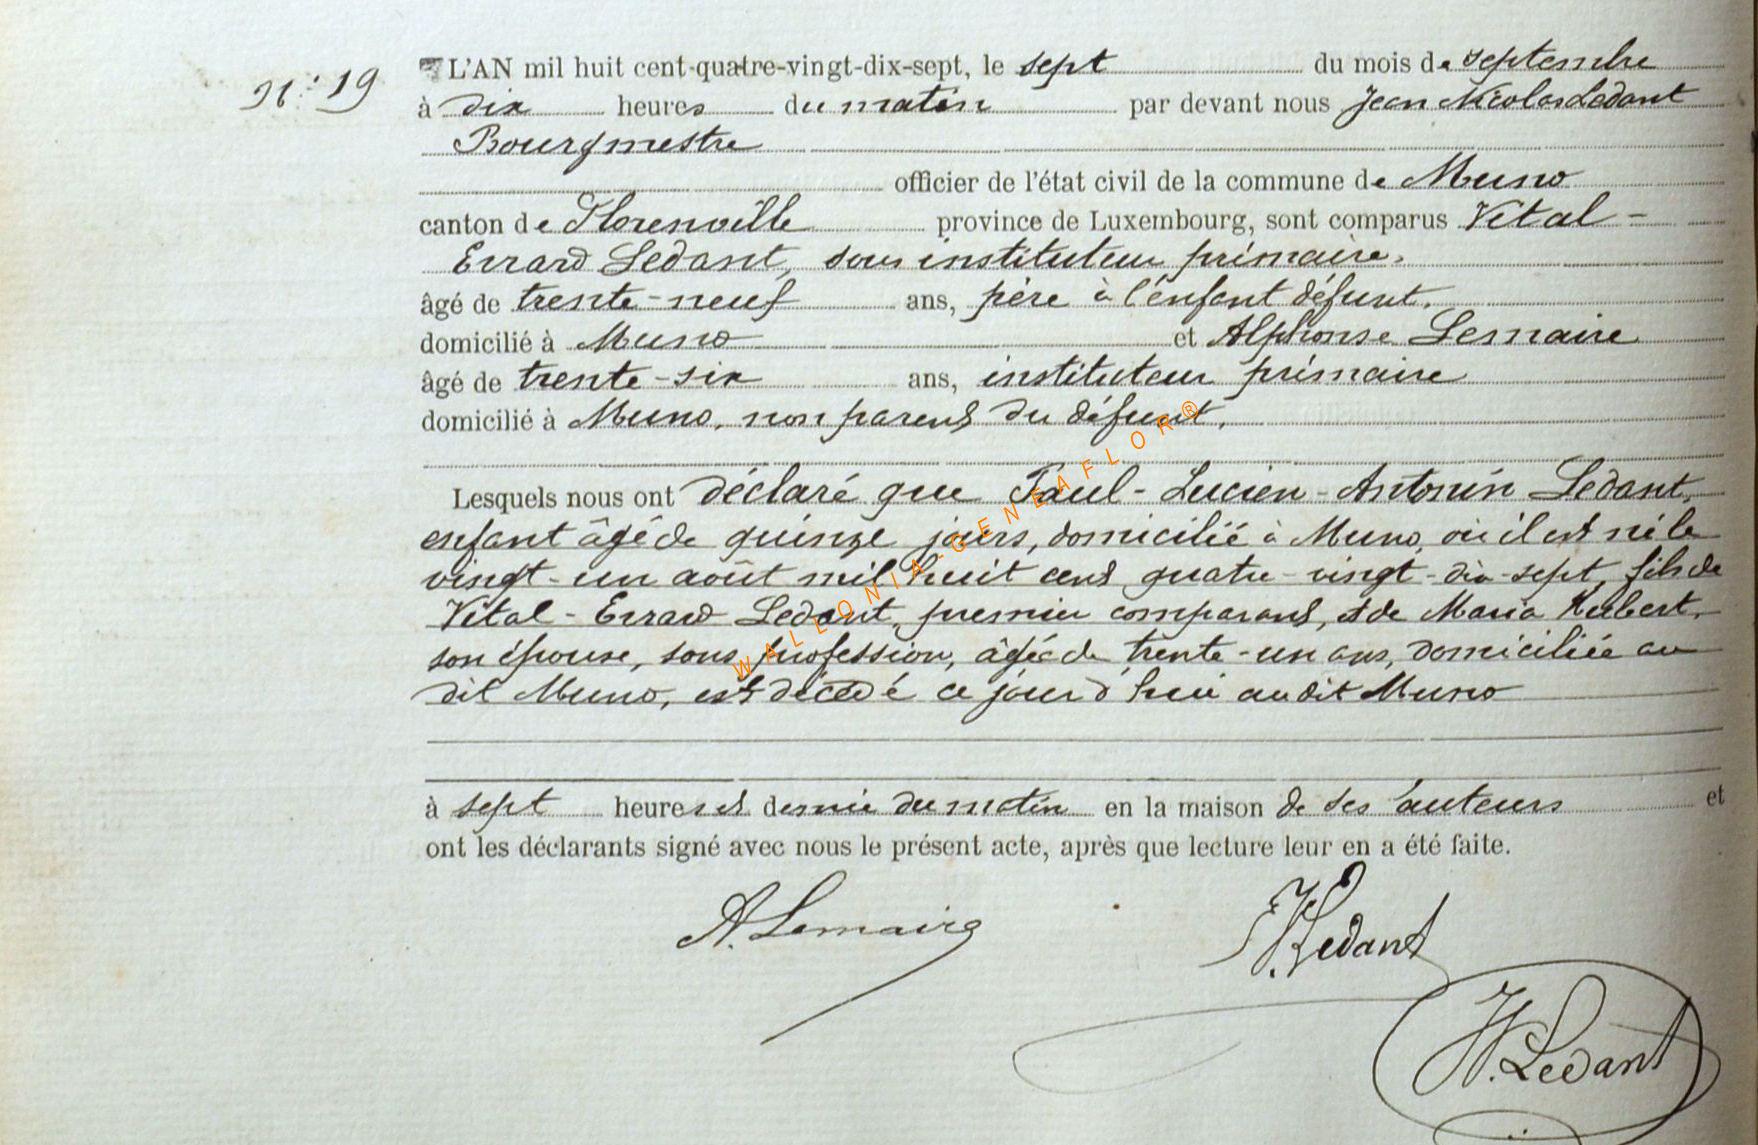 N° 19
L'AN mil huit cent-quatre-vingt-dix-sept, le sept du mois de septembre
à dix heures du matin par devant nous Jean Nicolas Ledant
Bourgmestre
officier de l'état civil de la commune de Muno
canton de Florenville province de Luxembourg, sont comparus Vital-
Errard Ledant, sous instituteur primaire,
âgé de trente-neuf ans, père à l'enfant défunt,
domicilié à Muno et Alphonse Lemaire
âgé de trente-six ans, instituteur primaire
domicilié à Muno, non parent du défunt,
Lesquels nous ont déclaré que Paul-Lucien-Antonin Ledant,
enfant âgé de quinze jours, domicilié à Muno, où il est né le
vingt-un août mil huit cent quatre-vingt-dix-sept, fils de
Vital-Errard Ledant, premier comparant, et de Maria Hubert,
son épouse, sans profession, âgée de trente-un ans, domiciliée au
dit Muno, est décédé ce jour d'hui au dit Muno
à sept heures et demie du matin en la maison de ses auteurs et
ont les déclarants signé avec nous le présent acte, après que lecture leur en a été faite.
A. Lemaire
V. Ledant
N. Ledant
WALLONIA-GENEAFLOR®